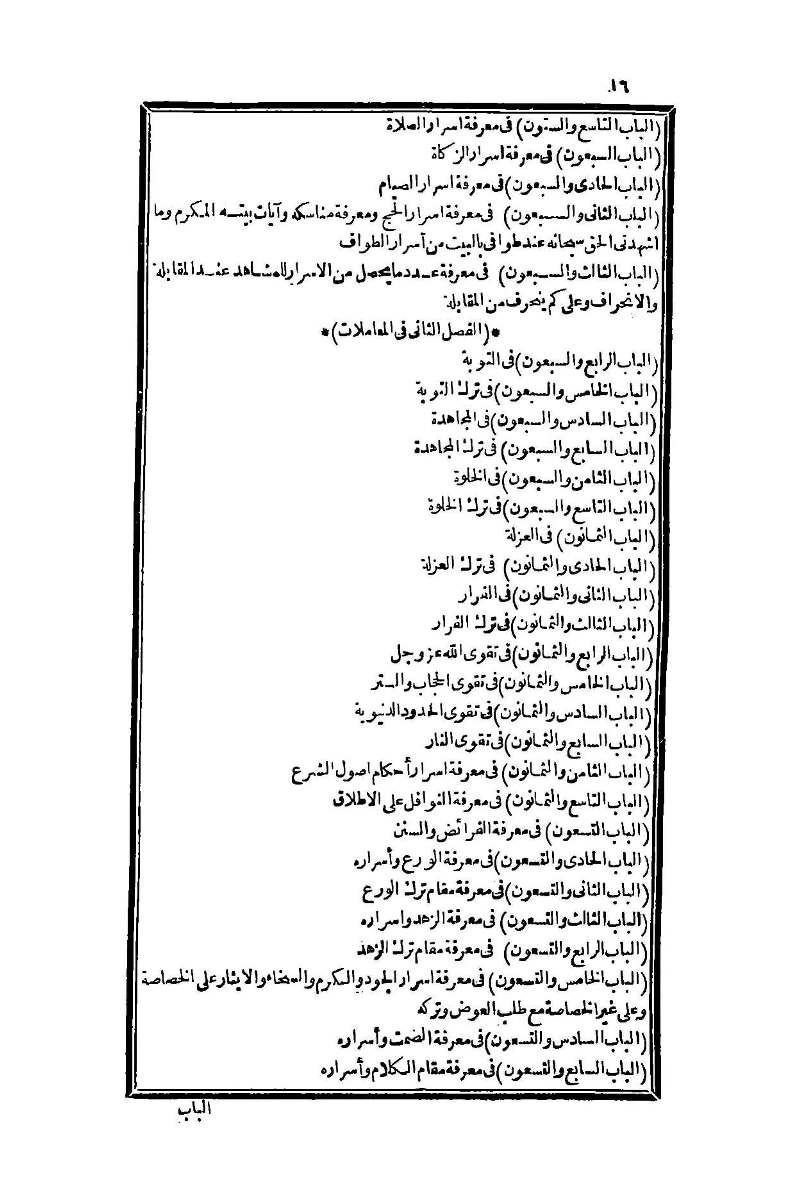 ١٦
(الباب التاسع والستون) فى معرفة اسرار الصلاة
(الباب السبعون) فى معرفة اسرار الزكاة
(الباب الحادى والسبعون) فى معرفة اسرار الصيام
(الباب الثانى والسبعون) فى معرفة اسرار الحج ومعرفة مناسكه وآيات بيته المكرم وما
اشهدنى الحق سبحانه عند طوافى بالبيت من أسرار الطواف
(الباب الثالث والسبعون) فى معرفة عدد ما يحصل من الاسرار للمشاهد عند المقابلة
والانحراف وعلى كم ينحرف من المقابلة
*(الفصل الثانى فى المعاملات)*
(الباب الرابع والسبعون) فى التوبة
(الباب الخامس والسبعون) فى ترك التوبة
(الباب السادس والسبعون) فى المجاهدة
(الباب السابع والسبعون) فى ترك المجاهدة
(الباب الثامن والسبعون) فى الخلوة
(الباب التاسع والسبعون) فى ترك الخلوة
(الباب الثمانون) فى العزلة
(الباب الحادى والثمانون) فى ترك العزلة
(الباب الثانى والثمانون) فى الفرار
(الباب الثالث والثمانون) فى ترك الفرار
(الباب الرابع والثمانون) فى تقوى الله عز وجل
(الباب الخامس والثمانون) فى تقوى الحجاب والستر
(الباب السادس والثمانون) فى تقوى الحدود الدنيوية
(الباب السابع والثمانون) فى تقوى النار
(الباب الثامن والثمانون) فى معرفة اسرار أحكام اصول الشرع
(الباب التاسع والثمانون) فى معرفة النوافل على الاطلاق
(الباب التسعون) فى معرفة الفرائض والسنن
(الباب الحادى والتسعون) فى معرفة الورع وأسراره
(الباب الثانى والتسعون) فى معرفة مقام ترك الورع
(الباب الثالث والتسعون) فى معرفة الزهد واسراره
(الباب الرابع والتسعون) فى معرفة مقام ترك الزهد
(الباب الخامس والتسعون) فى معرفة اسرار الجود والكرم والسخاء والايثار على الخصاصة
وعلى غير الخصاصة مع طلب العوض وتركه
(الباب السادس والتسعون) فى معرفة الصمت وأسراره
(الباب السابع والتسعون) فى معرفة مقام الكلام وأسراره
الباب